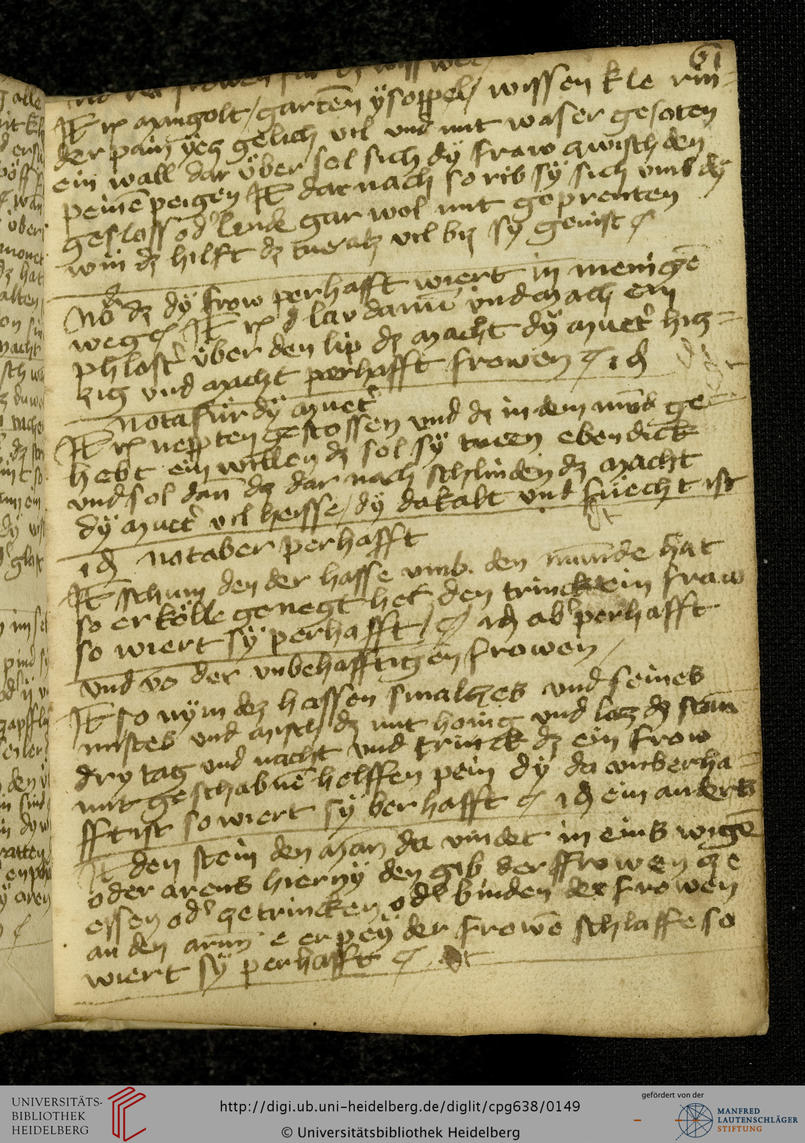 61
It rx mingolt / garten ysoppel / wissen kle rin-
der pain yez gelich vil vnd mit waser gesoten
ein wall dar über sol sich dy fraw zwischden
peinē peigen It darnach so rib sy sich vmb dy
geschloss od lende gar wol mit geprenten
win dz hilft dz vil biz sy genist
Nō dz dy frow perhafft wiert in menigē
weg It rx lavdanū vnd mach ein
phlast über den lip dz macht dy muet hiz-
zig vnd macht perhafft frowen id
Nota für dy muet
It rx nepten gestossen vnd dz in dem mūd ge-
hebt ein willen dz sol sy tueen eben dick
vnd sol dan dz dar nach schlinden dz macht
dy muet vil heisse / dy da kalt vnd fuecht ist
id nota ber perhafft
It schum den der hasse vmb. den munde hat
so er kölle genegt het den trinck ein fraw
so wiert sy perhafft / id ab perhafft
vnd vō der vnbehafftigen frowen /
It so nym dez hassen smalczes vnd seines
mistes vnd misch dz mit honig vnd laz dz stan
dry tag vnd nacht vnd trinck dz ein frow
mit geschabnē helffen pein dy da vnberha-
fft ist so wiert sy berhafft id ein anders
It den stein den man da vindet in eins wigē
oder arens hierny den gib der ffrowen ze
essen od ze trincken od binden der frowen
an den arm e er pey der frowē schlaffe so
wiert sy perhafft
UNIVERSITÄTS-
BIBLIOTHEK
HEIDELBERG
http://digi.ub.uni-heidelberg.de/diglit/cpg638/0149
© Universitätsbibliothek Heidelberg
gefördert von der
MANFRED
LAUTENSCHLÄGER
STIFTUNG